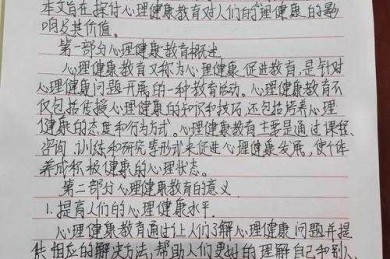 本文旨在探讨心理健康教育对人们的心理健康的影
响及其价值。
第一部分心理健康教育概述
心理健康教育又称为心理健康促进教育,是针对
心理健康问题开展的一种教育活动。心理健康教育不
仅包括传授心理健康的知识和技巧,还包括培养心理
健康的态度和行为方式。心理健康教育主要是通过课程、
咨询、训练和研究等形式来促进心理健康发展,使个体
养成积极健康的心理状态。
第二部分心理健康教育的意义
1.提高人们的心理健康水平
心理健康教育通过让人们了解心理健康问题并提
供相应的解决方法,帮助人们更好的理解自己和别人